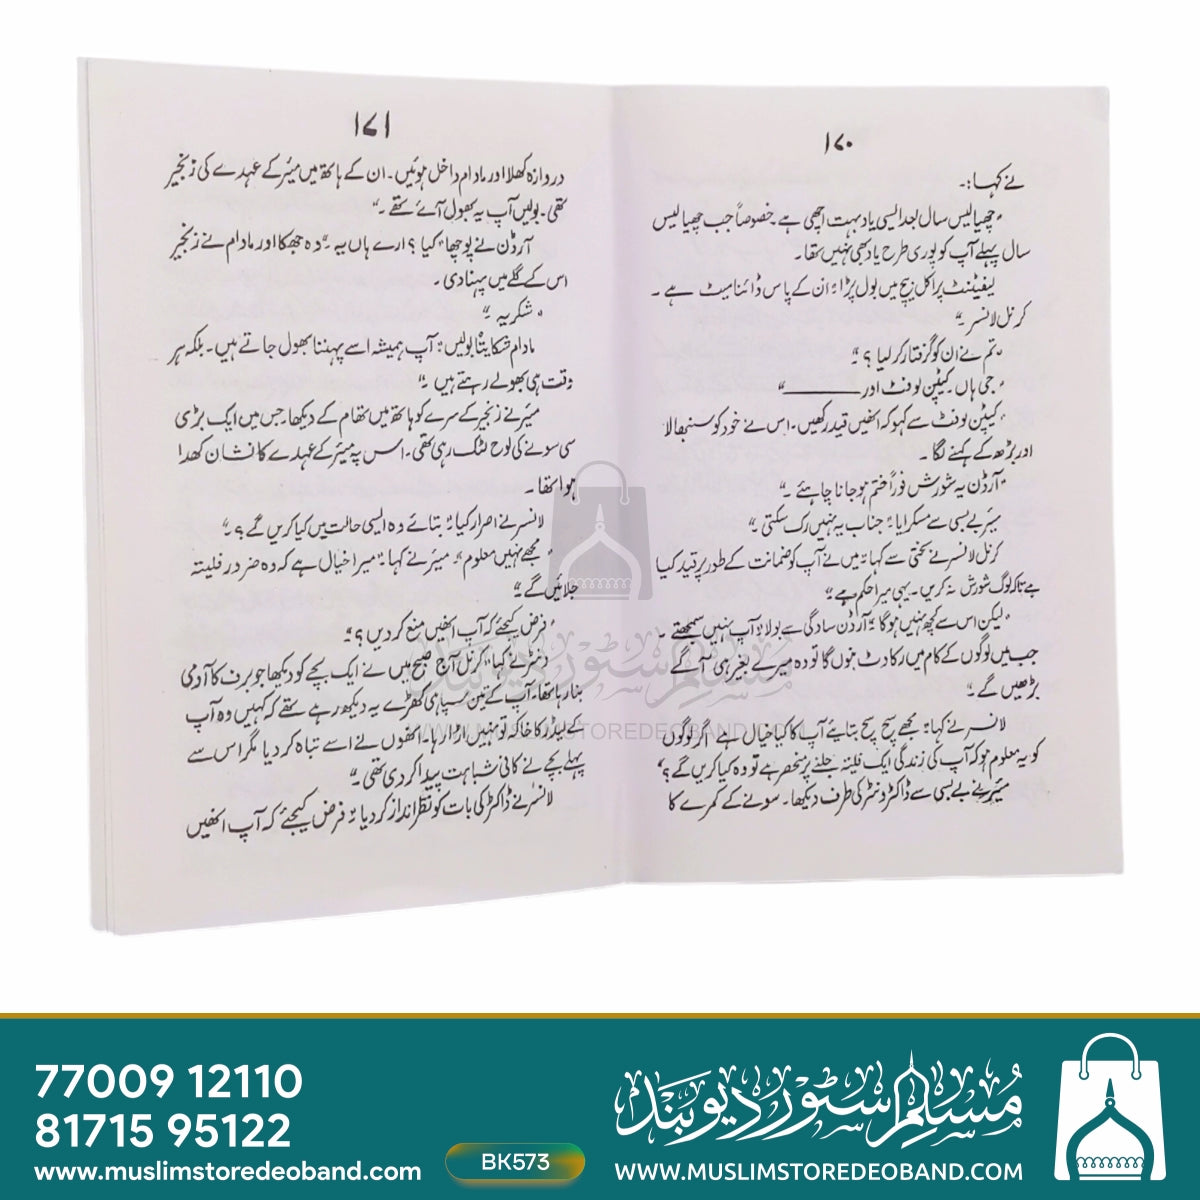 ۱۷۰
نے کہا:۔
"چھیالیس سال بعد ایسی یاد بہت اچھی ہے خصوصاً جب چھیالیس
سال پہلے آپ کو پوری طرح یاد بھی نہیں تھا۔
لیفٹیننٹ پراکل بیچ میں بول پڑا: ان کے پاس ڈائنامیٹ ہے۔
کرنل لانسر۔"
"تم نے ان کو گرفتار کر لیا؟"
"جی ہاں۔ کیپٹن لوفٹ اور ــــــــ"
"کیپٹن لوفٹ سے کہو کہ انھیں قید رکھیں۔ اس نے خود کو سنبھالا
اور بڑھ کے کہنے لگا۔
"آرڈن یہ شورش فوراً ختم ہو جانا چاہئے۔"
میئر بے بسی سے مسکرایا: جناب یہ نہیں رک سکتی۔"
کرنل لانسر نے سختی سے کہا: میں نے آپ کو ضمانت کے طور پر قید کیا
ہے تاکہ لوگ شورش نہ کریں۔ یہی میرا حکم ہے۔"
"لیکن اس سے کچھ نہیں ہوگا: آرڈن سادگی سے بولا: آپ نہیں سمجھتے۔
جب میں لوگوں کے کام میں رکاوٹ بنوں گا تو وہ میرے بغیر ہی آگے
بڑھیں گے۔"
لانسر نے کہا: مجھے سچ سچ بتائیے آپ کا کیا خیال ہے اگر لوگوں
کو یہ معلوم ہو کہ آپ کی زندگی ایک فلیتہ جلنے پر منحصر ہے تو وہ کیا کریں گے؟"
میئر نے بے بسی سے ڈاکٹر ونٹر کی طرف دیکھا۔ سونے کے کمرے کا
۱۷۱
دروازہ کھلا اور مادام داخل ہوئیں۔ ان کے ہاتھ میں میئر کے عہدے کی زنجیر
تھی۔ بولیں آپ یہ بھول آئے تھے۔"
آرڈن نے پوچھا "کیا؟ ارے ہاں یہ۔" وہ جھکا اور مادام نے زنجیر
اس کے گلے میں پہنا دی۔
"شکریہ۔"
مادام شکایتاً بولیں: آپ ہمیشہ اسے پہننا بھول جاتے ہیں۔ بلکہ ہر
وقت ہی بھولے رہتے ہیں۔"
میئر نے زنجیر کے سرے کو ہاتھ میں تھام کے دیکھا۔ جس میں ایک بڑی
سی سونے کی لوح لٹک رہی تھی۔ اس پہ میئر کے عہدے کا نشان کھدا
ہوا تھا۔
لانسر نے اصرار کیا: بتائے وہ ایسی حالت میں کیا کریں گے؟"
"مجھے نہیں معلوم": میئر نے کہا: میرا خیال ہے کہ وہ ضرور فلیتہ
جلائیں گے۔"
"فرض کیجئے کہ آپ انھیں منع کر دیں؟"
ونٹر نے کہا "کرنل آج صبح میں نے ایک بچے کو دیکھا جو برف کا آدمی
بنا رہا تھا۔ آپ کے تین سپاہی کھڑے یہ دیکھ رہے تھے کہ کہیں وہ آپ
کے لیڈر کا خاکہ تو نہیں اڑا رہا۔ انھوں نے اسے تباہ کر دیا مگر اس سے
پہلے بچے نے کافی شباہت پیدا کر دی تھی۔"
لانسر نے ڈاکٹر کی بات کو نظر انداز کر دیا: فرض کیجئے کہ آپ انھیں
مسلم سٹور دیوبند
WWW.MUSLIMSTOREDEOBAND.COM
77009 12110
81715 95122
www.muslimstoredeoband.com
BK573
مسلم سٹور دیوبند
WWW.MUSLIMSTOREDEOBAND.COM